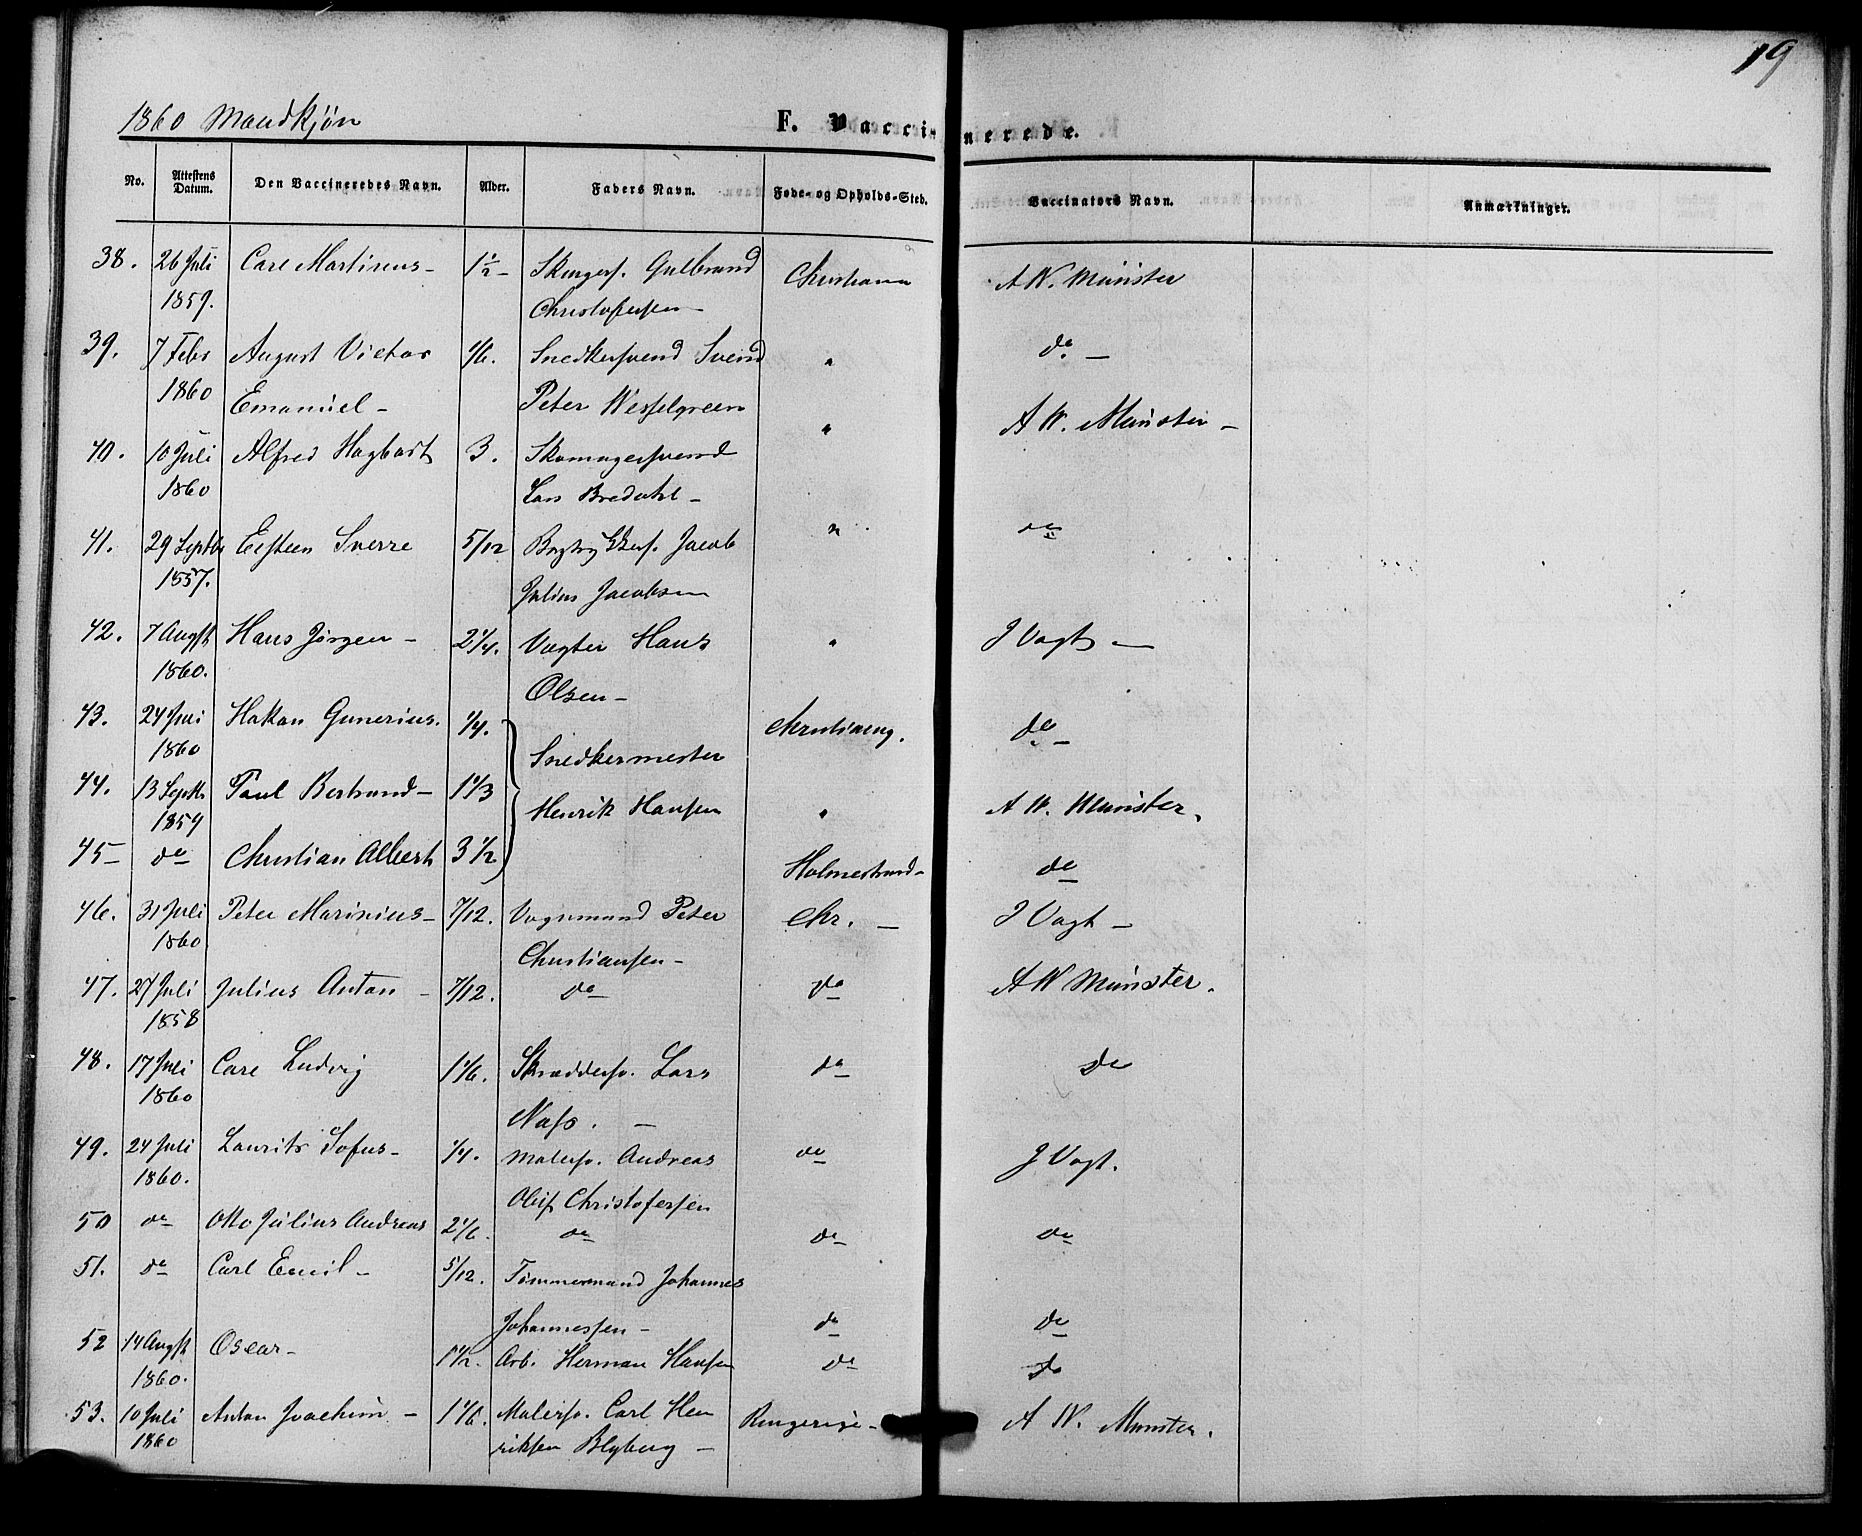 19
1860 Mandkjøn
F. Vaccinerede.
No. Attestens Datum. Den Vaccineredes Navn. Alder. Faders Navn. Føde- og Opholds-Sted. Vaccinators Navn. Anmærkninger.
38. 26 Juli Carl Martinius - 1 1/2 - Skrogers. Gulbrand Christiania A W. Münster
1859. Christofersen -
39. 7 Febr August Victor 1/6. Snedkersvend Svend " do -
1860 Emanuel - Peter Wesselgreen
40. 10 Juli Alfred Hagbart 3. Skomagersvend " A W. Münster -
1860 Lars Bredahl -
41. 29 Septbr Eisteen Sverre 5/12 Bogtrykkers. Jacob " do
1857. Julius Jacobsen
42. 7 Augst Hans Jørgen - 2 1/4. Vægter Hans " J Vogt -
1860. Olsen -
43. 24 Juli Hakan Gunerius. 1/4. Snedkermester Christiania. do -
1860
44. 13 Septbr Paul Bertrand - 1 1/3 Henrik Hansen " A W. Münster.
1859
45 - do Christian Albert 3 1/2 Holmestrand - do
46. 31 Juli Peter Marinius - 7/12. Vognmand Peter Chr. - J Vogt -
1860 Christiansen -
47. 27 Juli Julius Anton - 7/12. do do A W Münster.
1858
48. 17 Juli Carl Ludvig 1 1/6. Skrædders. Lars do do
1860 Næss. -
49. 24 Juli Laurits Sofus - 1/4. Malersv. Andreas do J Vogt.
1860. Oluf Christofersen
50 do Otto Julius Andreas 2 1/6. do do do
51. do Carl Emil - 5/12. Tømmermand Johannes
Johannessen - do do
52 14 Augst Oscar - 1 1/2. Arb. Herman Hansen do do
1860.
53. 10 Juli Anton Joachim - 1 1/6. Malersv. Carl Hen Ringerige - A W. Munster.
1860 riksen Blyberg -